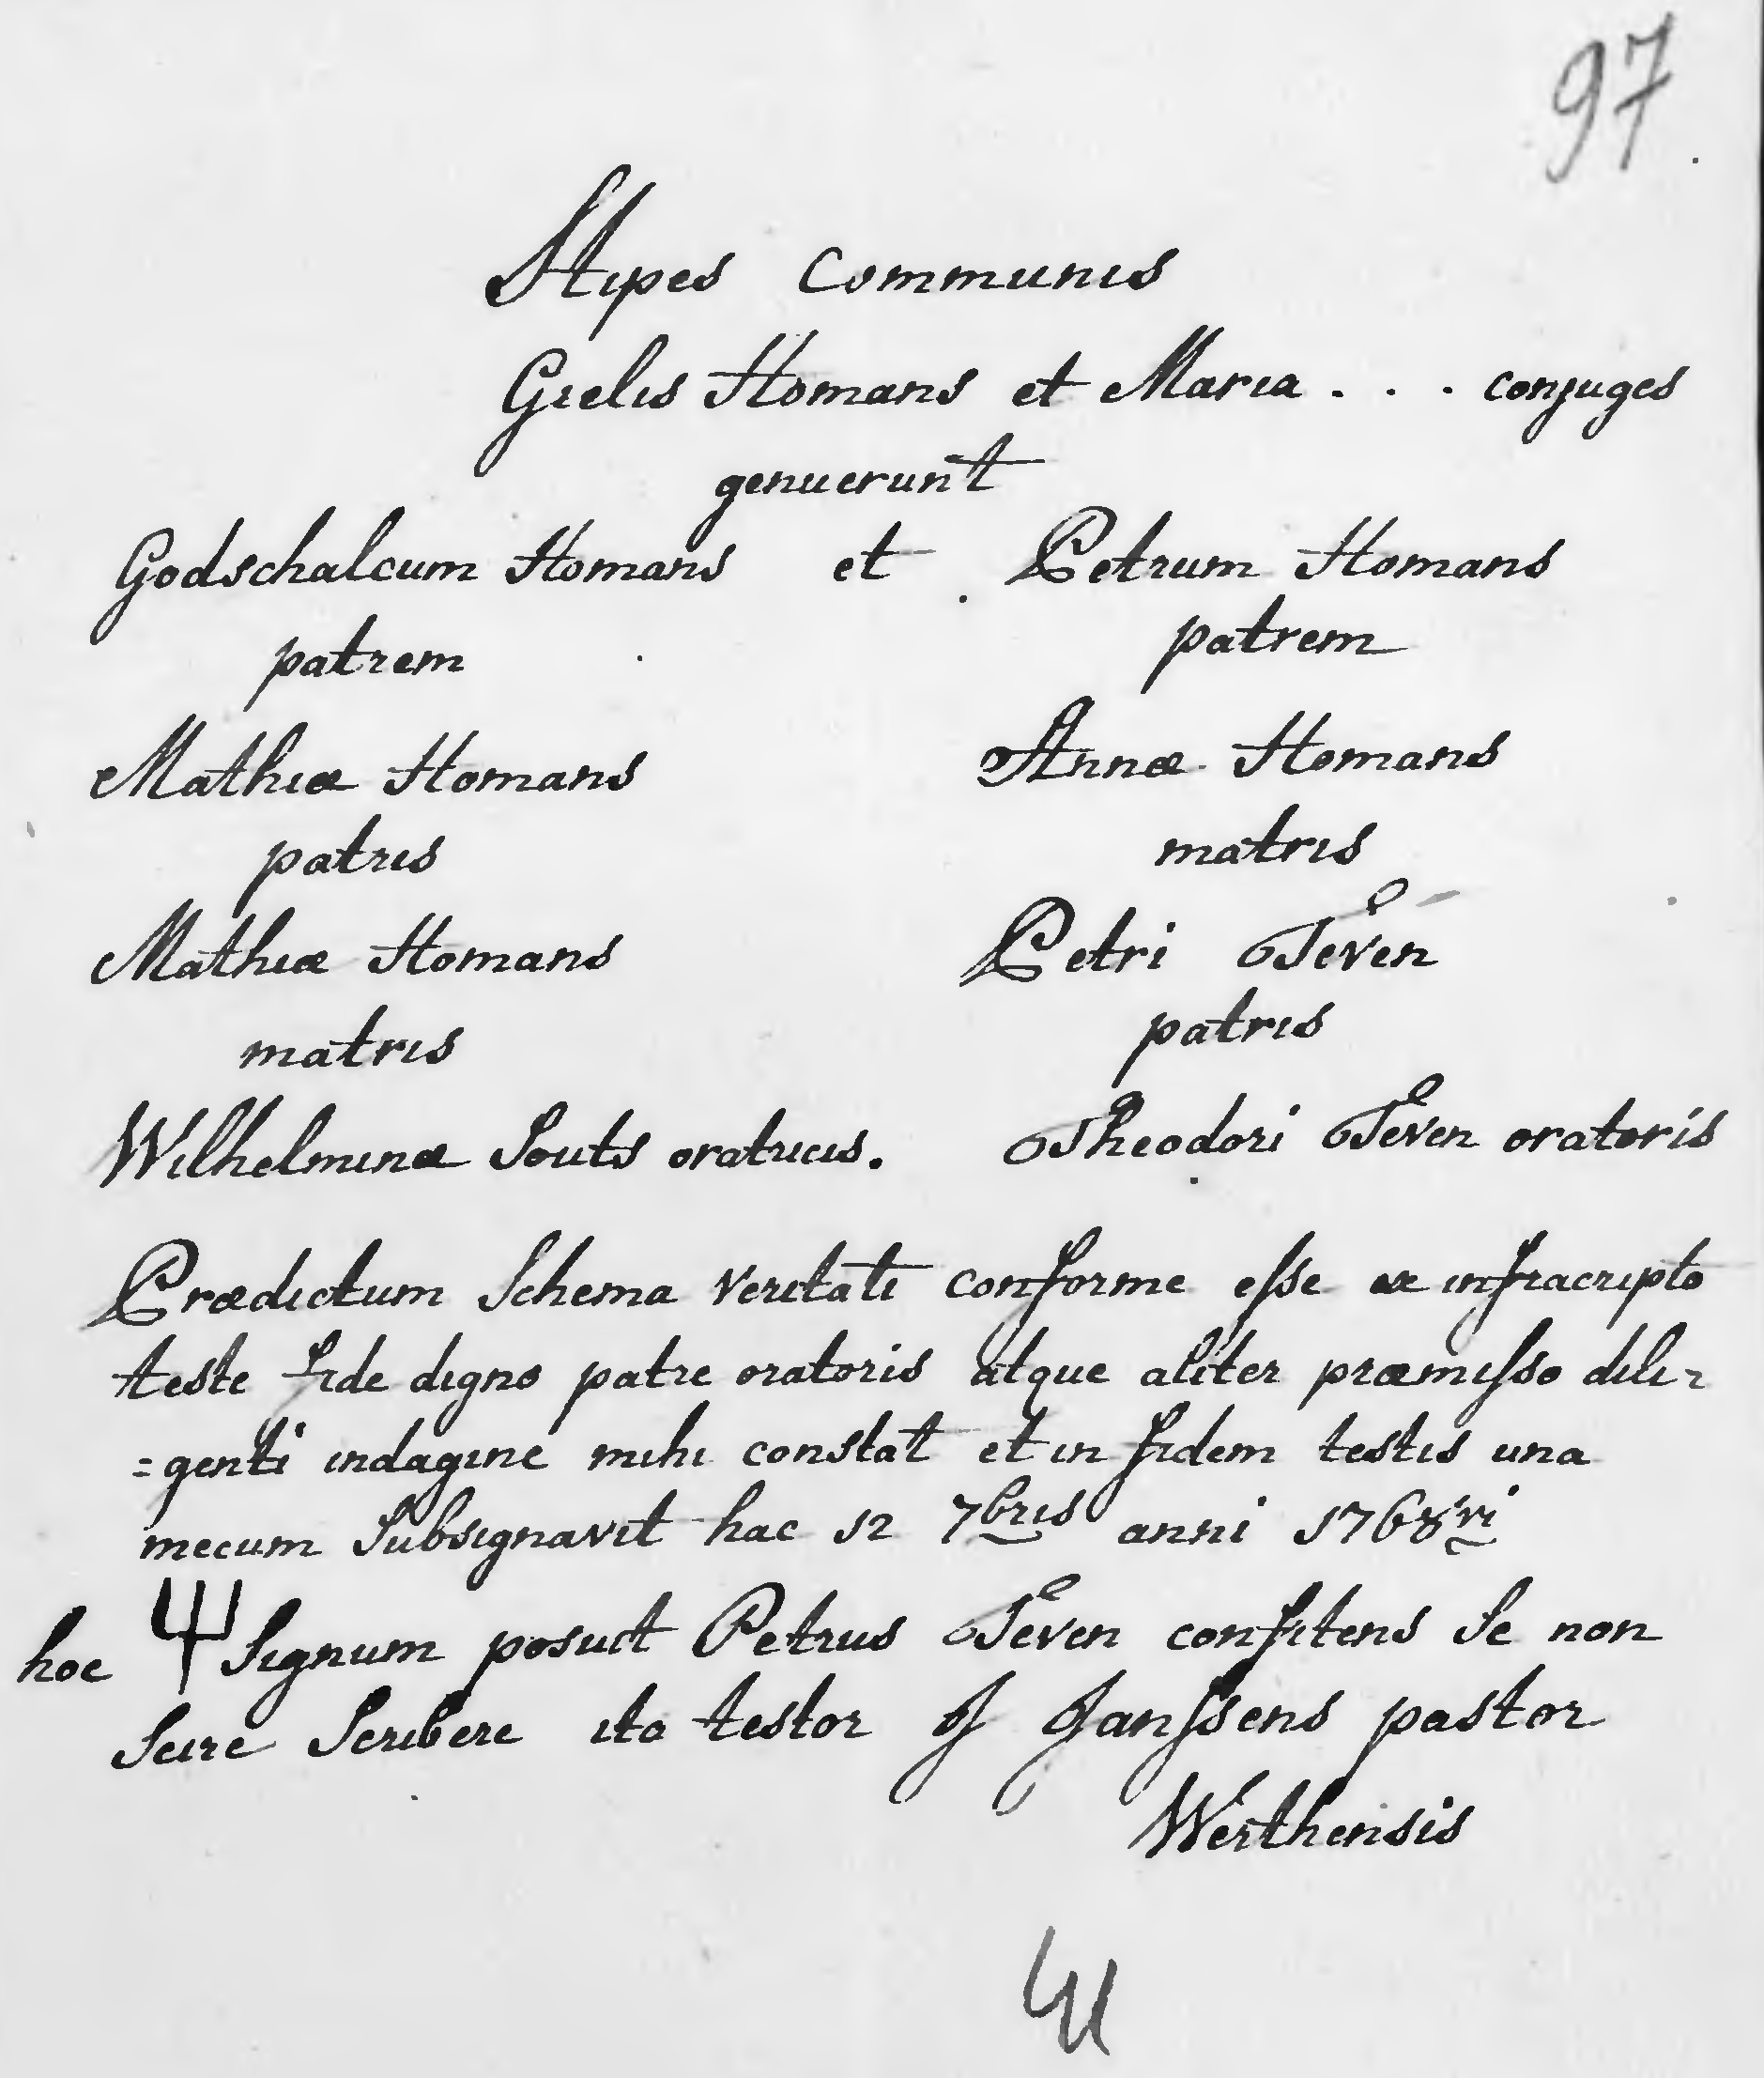 97.
Stipes Communis
Gielis Homans et Maria . . . conjuges
genuerunt
Godschalcum Homans et Petrum Homans
patrem patrem
Mathiæ Homans Annæ Homans
patris matris
Mathiæ Homans Petri Teven
matris patris
Wilhelminæ Souts oratricis. Theodori Teven oratoris
Prædictum Schema veritati conforme esse ex infracripto
teste fide digno patre oratoris atque aliter præmisso dili-
=genti indagine mihi constat et in fidem testis una
mecum Subsignavit hac 12 7bris anni 1768vi
hoc Signum posuit Petrus Teven confitens Se non
Scire Scribere ita testor J Janssens pastor
Werthensis